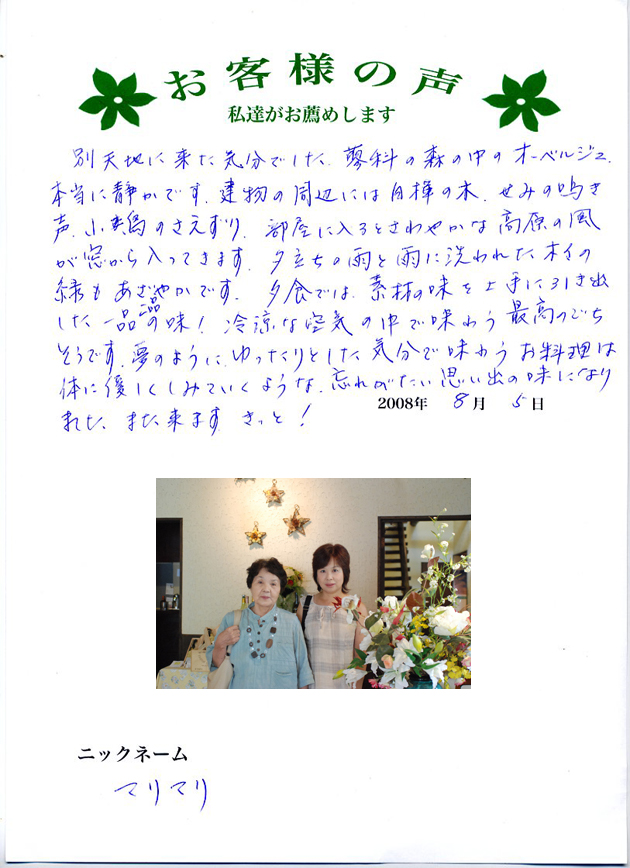 お客様の声
私達がお薦めします
別天地に来た気分でした。蓼科の森の中のオーベルジュ。
本当に静かです。建物の周辺には白樺の木、せみの鳴き
声、小鳥のさえずり、部屋に入るとさわやかな高原の風
が窓から入ってきます。夕立ちの雨と雨に洗われた木々の
緑もあざやかです。夕食では、素材の味を上手に引き出
した一品一品の味！冷涼な空気の中で味わう最高のごち
そうです。夢のように、ゆったりとした気分で味わうお料理は
体に優しくしみていくような、忘れがたい思い出の味になり
ました、また来ます きっと！
2008年 8月 5日
ニックネーム
マリマリ